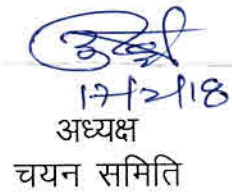 17/2/18
अध्यक्ष
चयन समिति